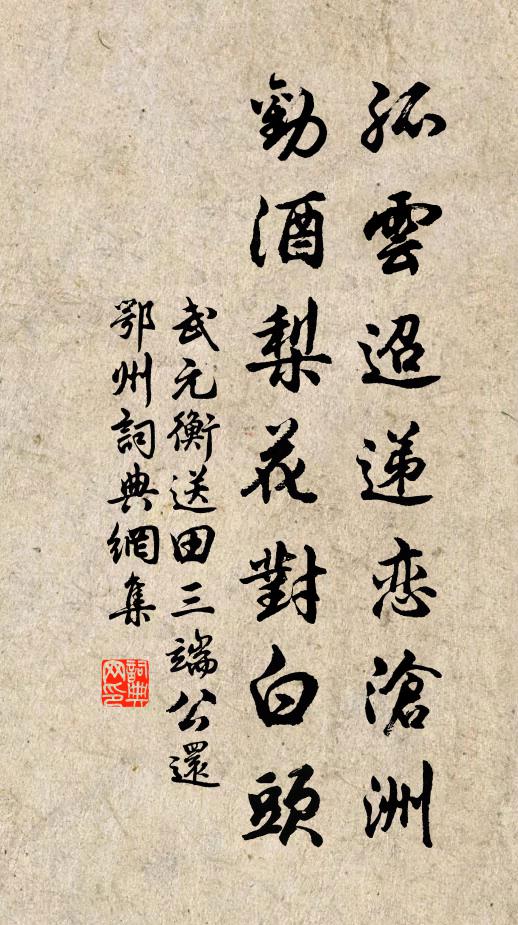 孤雲迢递恋滄洲
勸酒梨花對白頭
武元衡送田三端公還
鄂州詞典網集
詞典网印